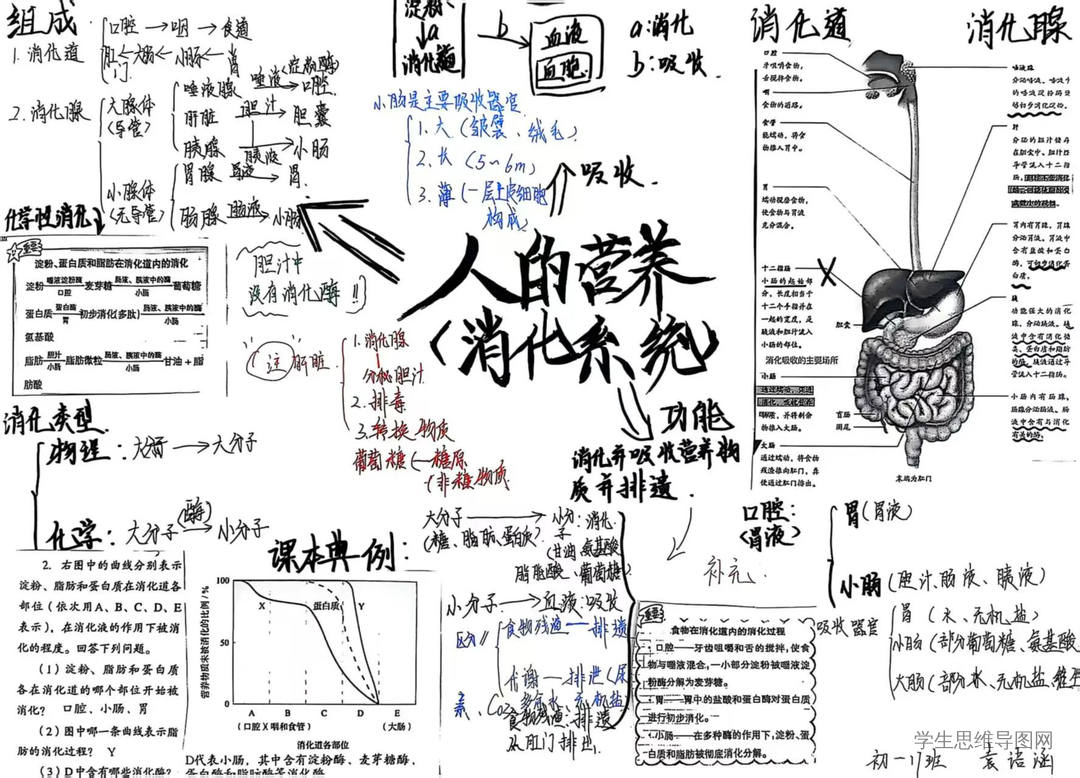 组成
1. 消化道
口腔→咽→食道
肛门←大肠←小肠←胃
2. 消化腺
大腺体(导管)
唾液腺 唾液(淀粉酶)→口腔
肝脏 胆汁→胆囊
胰腺 胰液→小肠
小腺体(无导管)
胃腺 胃液→胃
肠腺 肠液→小肠
淀粉
a
消化道
b
血液
血胞
a:消化
b:吸收
小肠是主要吸收器官
1.大(皱襞、绒毛)
2.长(5~6m)
3.薄(一层上皮细胞构成)
吸收
化学性消化
重要
淀粉、蛋白质和脂肪在消化道内的消化
淀粉 唾液淀粉酶 口腔 麦芽糖 肠液、胰液中的酶 小肠 葡萄糖
蛋白质 蛋白酶 胃 初步消化(多肽) 肠液、胰液中的酶 小肠
氨基酸
脂肪 胆汁 小肠 脂肪微粒 肠液、胰液中的酶 小肠 甘油+脂
肪酸
胆汁中
没有消化酶!!
人的营养
(消化系统)
注 肝脏
1.消化腺
分泌胆汁
2.排毒
3.转换物质
葡萄糖←糖原
(非糖物质
功能
消化并吸收营养物
质并排遗
消化类型
物理:大分子→大分子
化学:大分子(酶)→小分子
大分子→小分子:消化
(糖、脂肪、蛋白质)
(甘油、氨基酸
脂肪酸、葡萄糖)
小分子→血液:吸收
区分
食物残渣——排遗
代谢——排泄(尿
素、CO₂、多余水、无机盐)
食物残渣:排遗
从肛门排出
补充
口腔:
(胃液)
胃(胃液)
小肠(胆汁、肠液、胰液)
吸收器官
胃(水、无机盐)
小肠(部分葡萄糖、氨基酸
大肠(部分水、无机盐、维生
课本典例:
2. 右图中的曲线分别表示
淀粉、脂肪和蛋白质在消化道各
部位(依次用A、B、C、D、E
表示),在消化液的作用下被消
化的程度。回答下列问题。
(1)淀粉、脂肪和蛋白质
各在消化道的哪个部位开始被
消化? 口腔、小肠、胃
(2)图中哪一条曲线表示脂
肪的消化过程? Y
(3)D中含有哪些消化酶?
营养物质未被消化的比例/%
100
50
0
X
蛋白质
Y
A B C D E
(口腔)(咽和食管) (大肠)
消化道各部位
D代表小肠,其中含有淀粉酶、麦芽糖酶、
蛋白酶和脂肪酶等消化酶
重要
食物在消化道内的消化过程
·口腔——牙齿咀嚼和舌的搅拌,使食
物与唾液混合,一小部分淀粉被唾液淀
粉酶分解为麦芽糖。
·胃——胃中的盐酸和蛋白酶对蛋白质
进行初步消化。
·小肠——在多种酶的作用下,淀粉、蛋
白质和脂肪被彻底消化分解。
消化道
消化腺
口腔
牙咀嚼食物,
舌搅拌食物。
咽
食物的通路。
食管
能蠕动,将食
物推入胃中。
胃
蠕动搅磨食物,
使食物与胃液
充分混合。
十二指肠
小肠的起始部
分,长度相当于
十二个手指并在
一起的宽度,是
胰液和胆汁流入
小肠的部位。
消化吸收的主要场所
小肠
通过蠕动,促进
消化,吸收营养
物质,并将剩余
物推入大肠。
大肠
通过蠕动,将食物
残渣推向肛门,粪
便通过肛门排出。
胆囊
盲肠
阑尾
末端为肛门
唾液腺
分泌唾液,唾液中
的唾液淀粉酶能
够初步消化淀粉。
肝
分泌的胆汁储存
在胆囊中,胆汁经
导管流入十二指
肠,
胃内有胃腺,胃腺
分泌胃液。胃液中
含有盐酸和蛋白
酶,可初步消化蛋
白质。
胰
功能强大的消化
腺,分泌胰液。胰
液中含有消化糖
类、蛋白质和脂肪
的酶。胰液通过导
管流入十二指肠。
小肠内有肠腺,
肠腺分泌肠液。肠
液中含有与消化
有关的酶。
学生思维导图网
初一11班 袁语涵